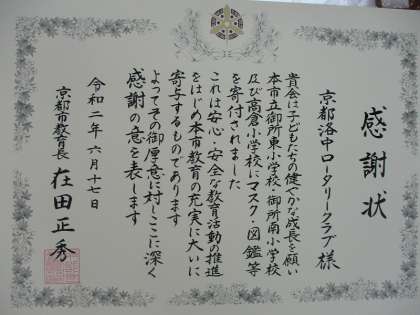 感謝状
京都洛中ロータリークラブ様
貴会は子どもたちの健やかな成長を願い
本市立御所東小学校・御所南小学校
及び高倉小学校にマスク・図鑑等
を寄付されました
これは安心・安全な教育活動の推進
をはじめ本市教育の充実に大いに
寄与するものであります
よってその御厚意に対しここに深く
感謝の意を表します
令和二年六月十七日
京都市教育長 在田正秀